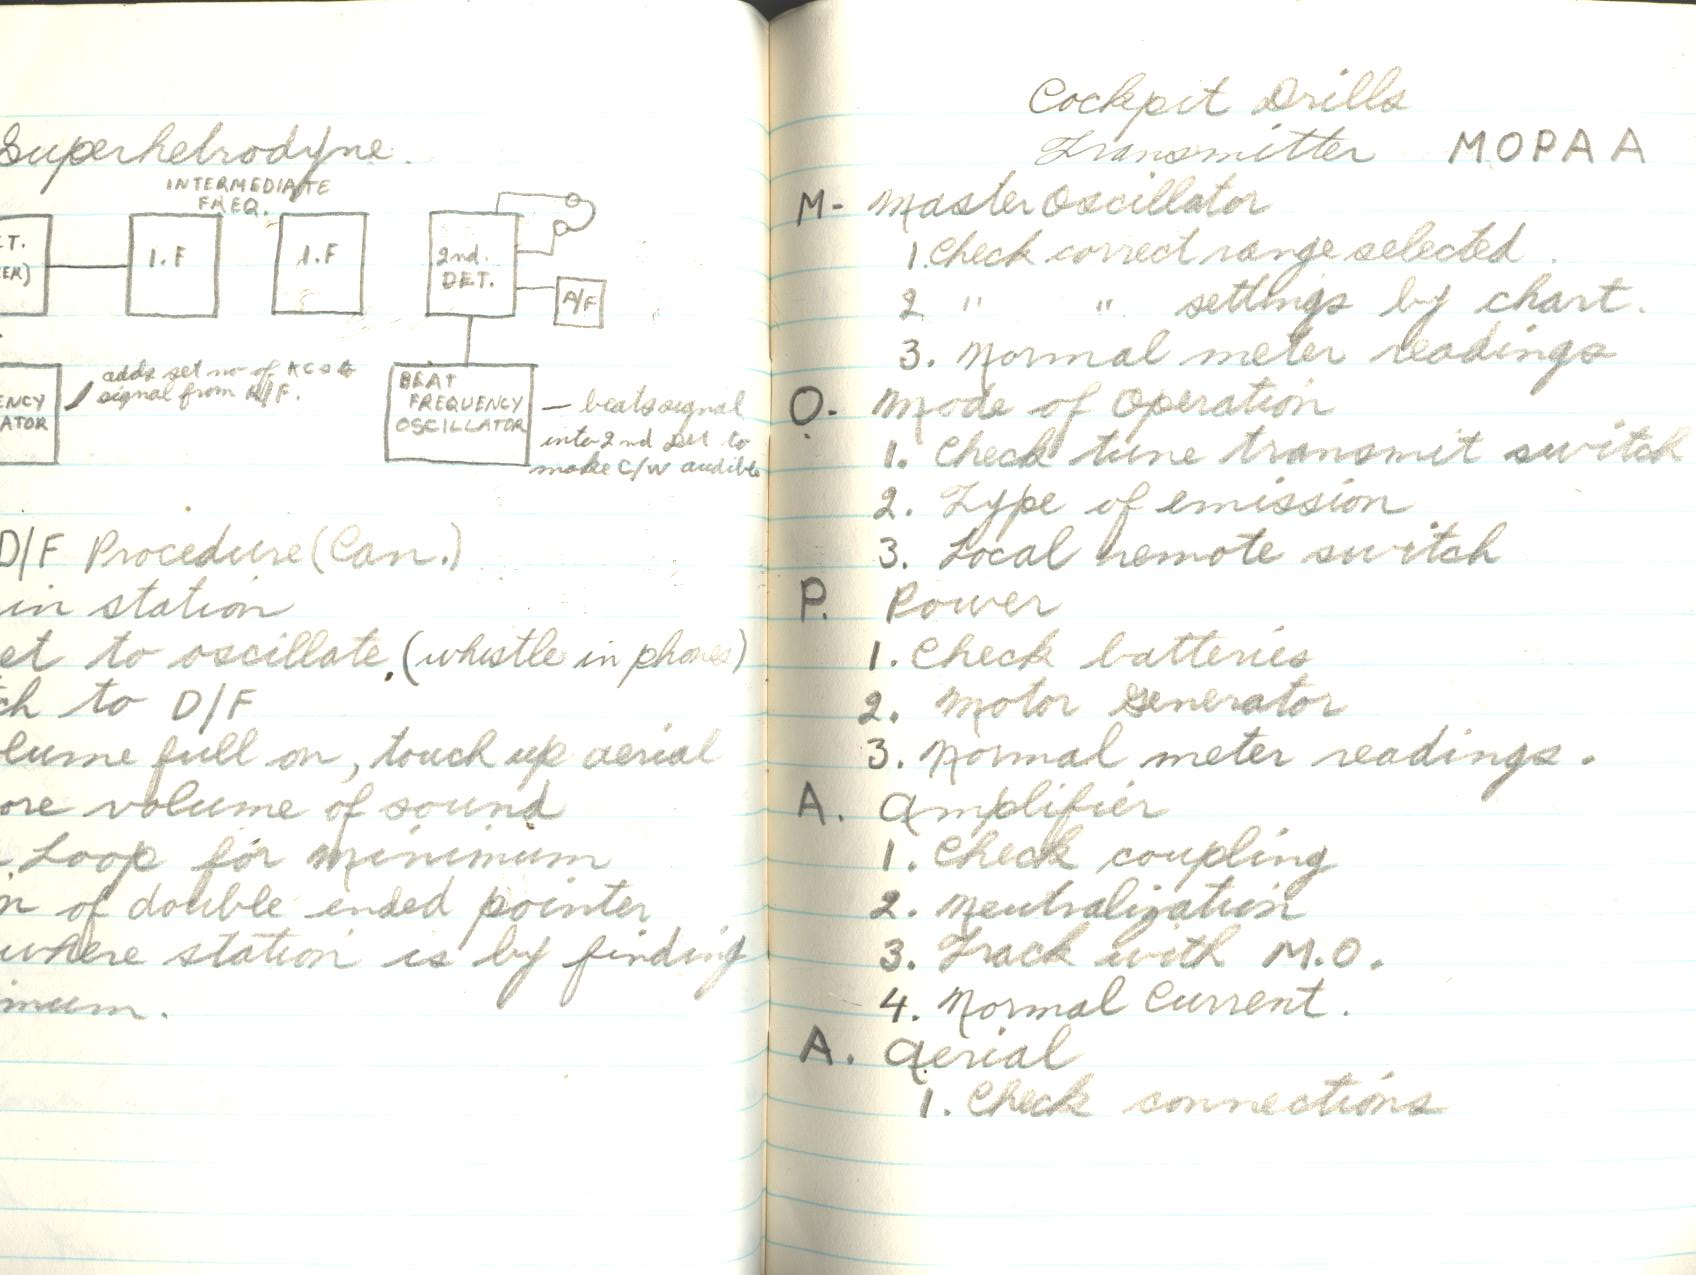 Superhetrodyne.
INTERMEDIATE
FREQ.
I.F
I.F
2nd.
DET.
A/F
adds set no of KCS to
signal from R/F.
BEAT
FREQUENCY
OSCILLATOR
— beats signal
into 2nd Det to
make C/W audible
D/F Procedure (Can.)
in station
to oscillate. (whistle in phones)
to D/F
full on, touch up aerial
volume of sound
Loop for minimum
of double ended pointer
where station is by finding
Cockpit Drills
Transmitter MOPAA
M- Master Oscillator
1. Check correct range selected.
2 " " settings by chart.
3. Normal meter readings
O- Mode of Operation
1. Check tune transmit switch
2. Type of emission
3. Local remote switch
P. Power
1. Check batteries
2. Motor Generator
3. Normal meter readings.
A. Amplifier
1. Check coupling
2. Neutralization
3. Track with M.O.
4. Normal Current.
A. Aerial
1. Check connections